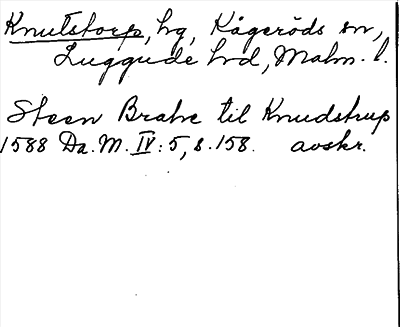 Knutstorp, hg, Kågeröds sn,
Luggude hrd, Malm. l.
Steen Brahe til Knudstrup
1588 Da. M. IV: 5, s. 158. avskr.